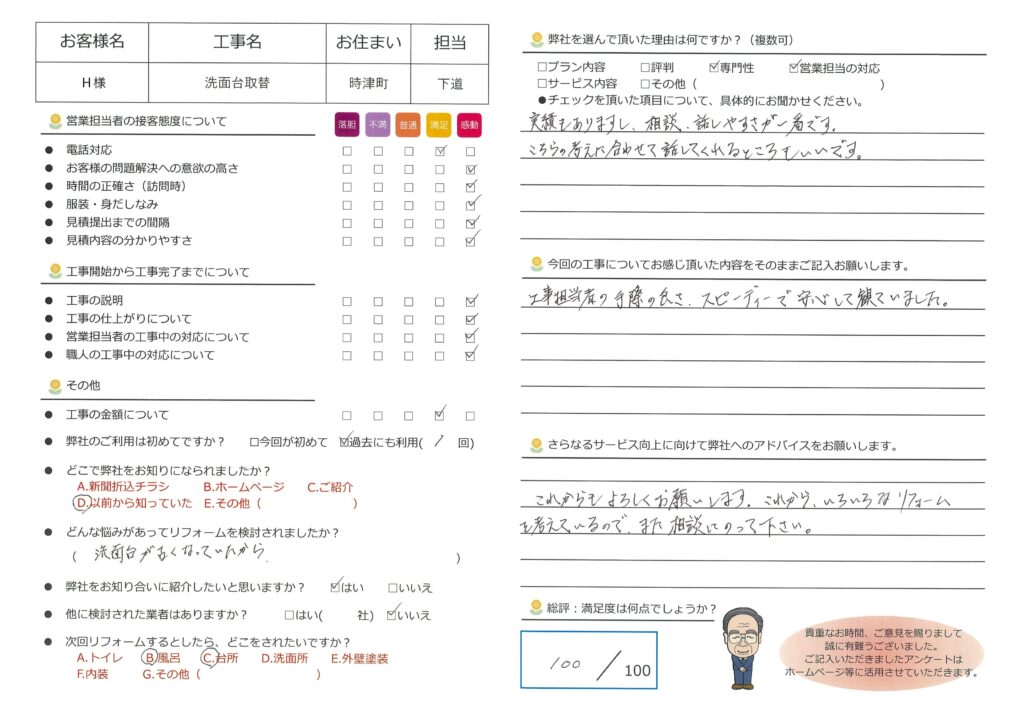 お客様名 工事名 お住まい 担当
H様 洗面台取替 時津町 下道
営業担当者の接客態度について
落胆 不満 普通 満足 感動
● 電話対応 □ □ □ ☑ □
● お客様の問題解決への意欲の高さ □ □ □ □ ☑
● 時間の正確さ（訪問時） □ □ □ □ ☑
● 服装・身だしなみ □ □ □ □ ☑
● 見積提出までの間隔 □ □ □ □ ☑
● 見積内容の分かりやすさ □ □ □ □ ☑
工事開始から工事完了までについて
● 工事の説明 □ □ □ □ ☑
● 工事の仕上がりについて □ □ □ □ ☑
● 営業担当者の工事中の対応について □ □ □ □ ☑
● 職人の工事中の対応について □ □ □ □ ☑
その他
● 工事の金額について □ □ □ ☑ □
● 弊社のご利用は初めてですか？ □今回が初めて ☑過去にも利用( 1 回)
● どこで弊社をお知りになられましたか？
A.新聞折込チラシ B.ホームページ C.ご紹介
D.以前から知っていた E.その他（ ）
● どんな悩みがあってリフォームを検討されましたか？
( 洗面台が古くなっていたから. )
● 弊社をお知り合いに紹介したいと思いますか？ ☑はい □いいえ
● 他に検討された業者はありますか？ □はい( 社) ☑いいえ
● 次回リフォームするとしたら、どこをされたいですか？
A.トイレ B.風呂 C.台所 D.洗面所 E.外壁塗装
F.内装 G.その他（ ）
弊社を選んで頂いた理由は何ですか？（複数可）
□プラン内容 □評判 ☑専門性 ☑営業担当の対応
□サービス内容 □その他（ ）
●チェックを頂いた項目について、具体的にお聞かせください。
実績もありますし、相談、話しやすさが一番です。
こちらの考えに合わせて話してくれるところもいいです。
今回の工事についてお感じ頂いた内容をそのままご記入お願いします。
工事担当者の手際の良さ、スピーディーで安心して観ていました。
さらなるサービス向上に向けて弊社へのアドバイスをお願いします。
これからもよろしくお願いします。これから、いろいろなリフォーム
を考えているので、また相談にのって下さい。
総評：満足度は何点でしょうか？
100 / 100
貴重なお時間、ご意見を賜りまして
誠に有難うございました。
ご記入いただきましたアンケートは
ホームページ等に活用させていただきます。